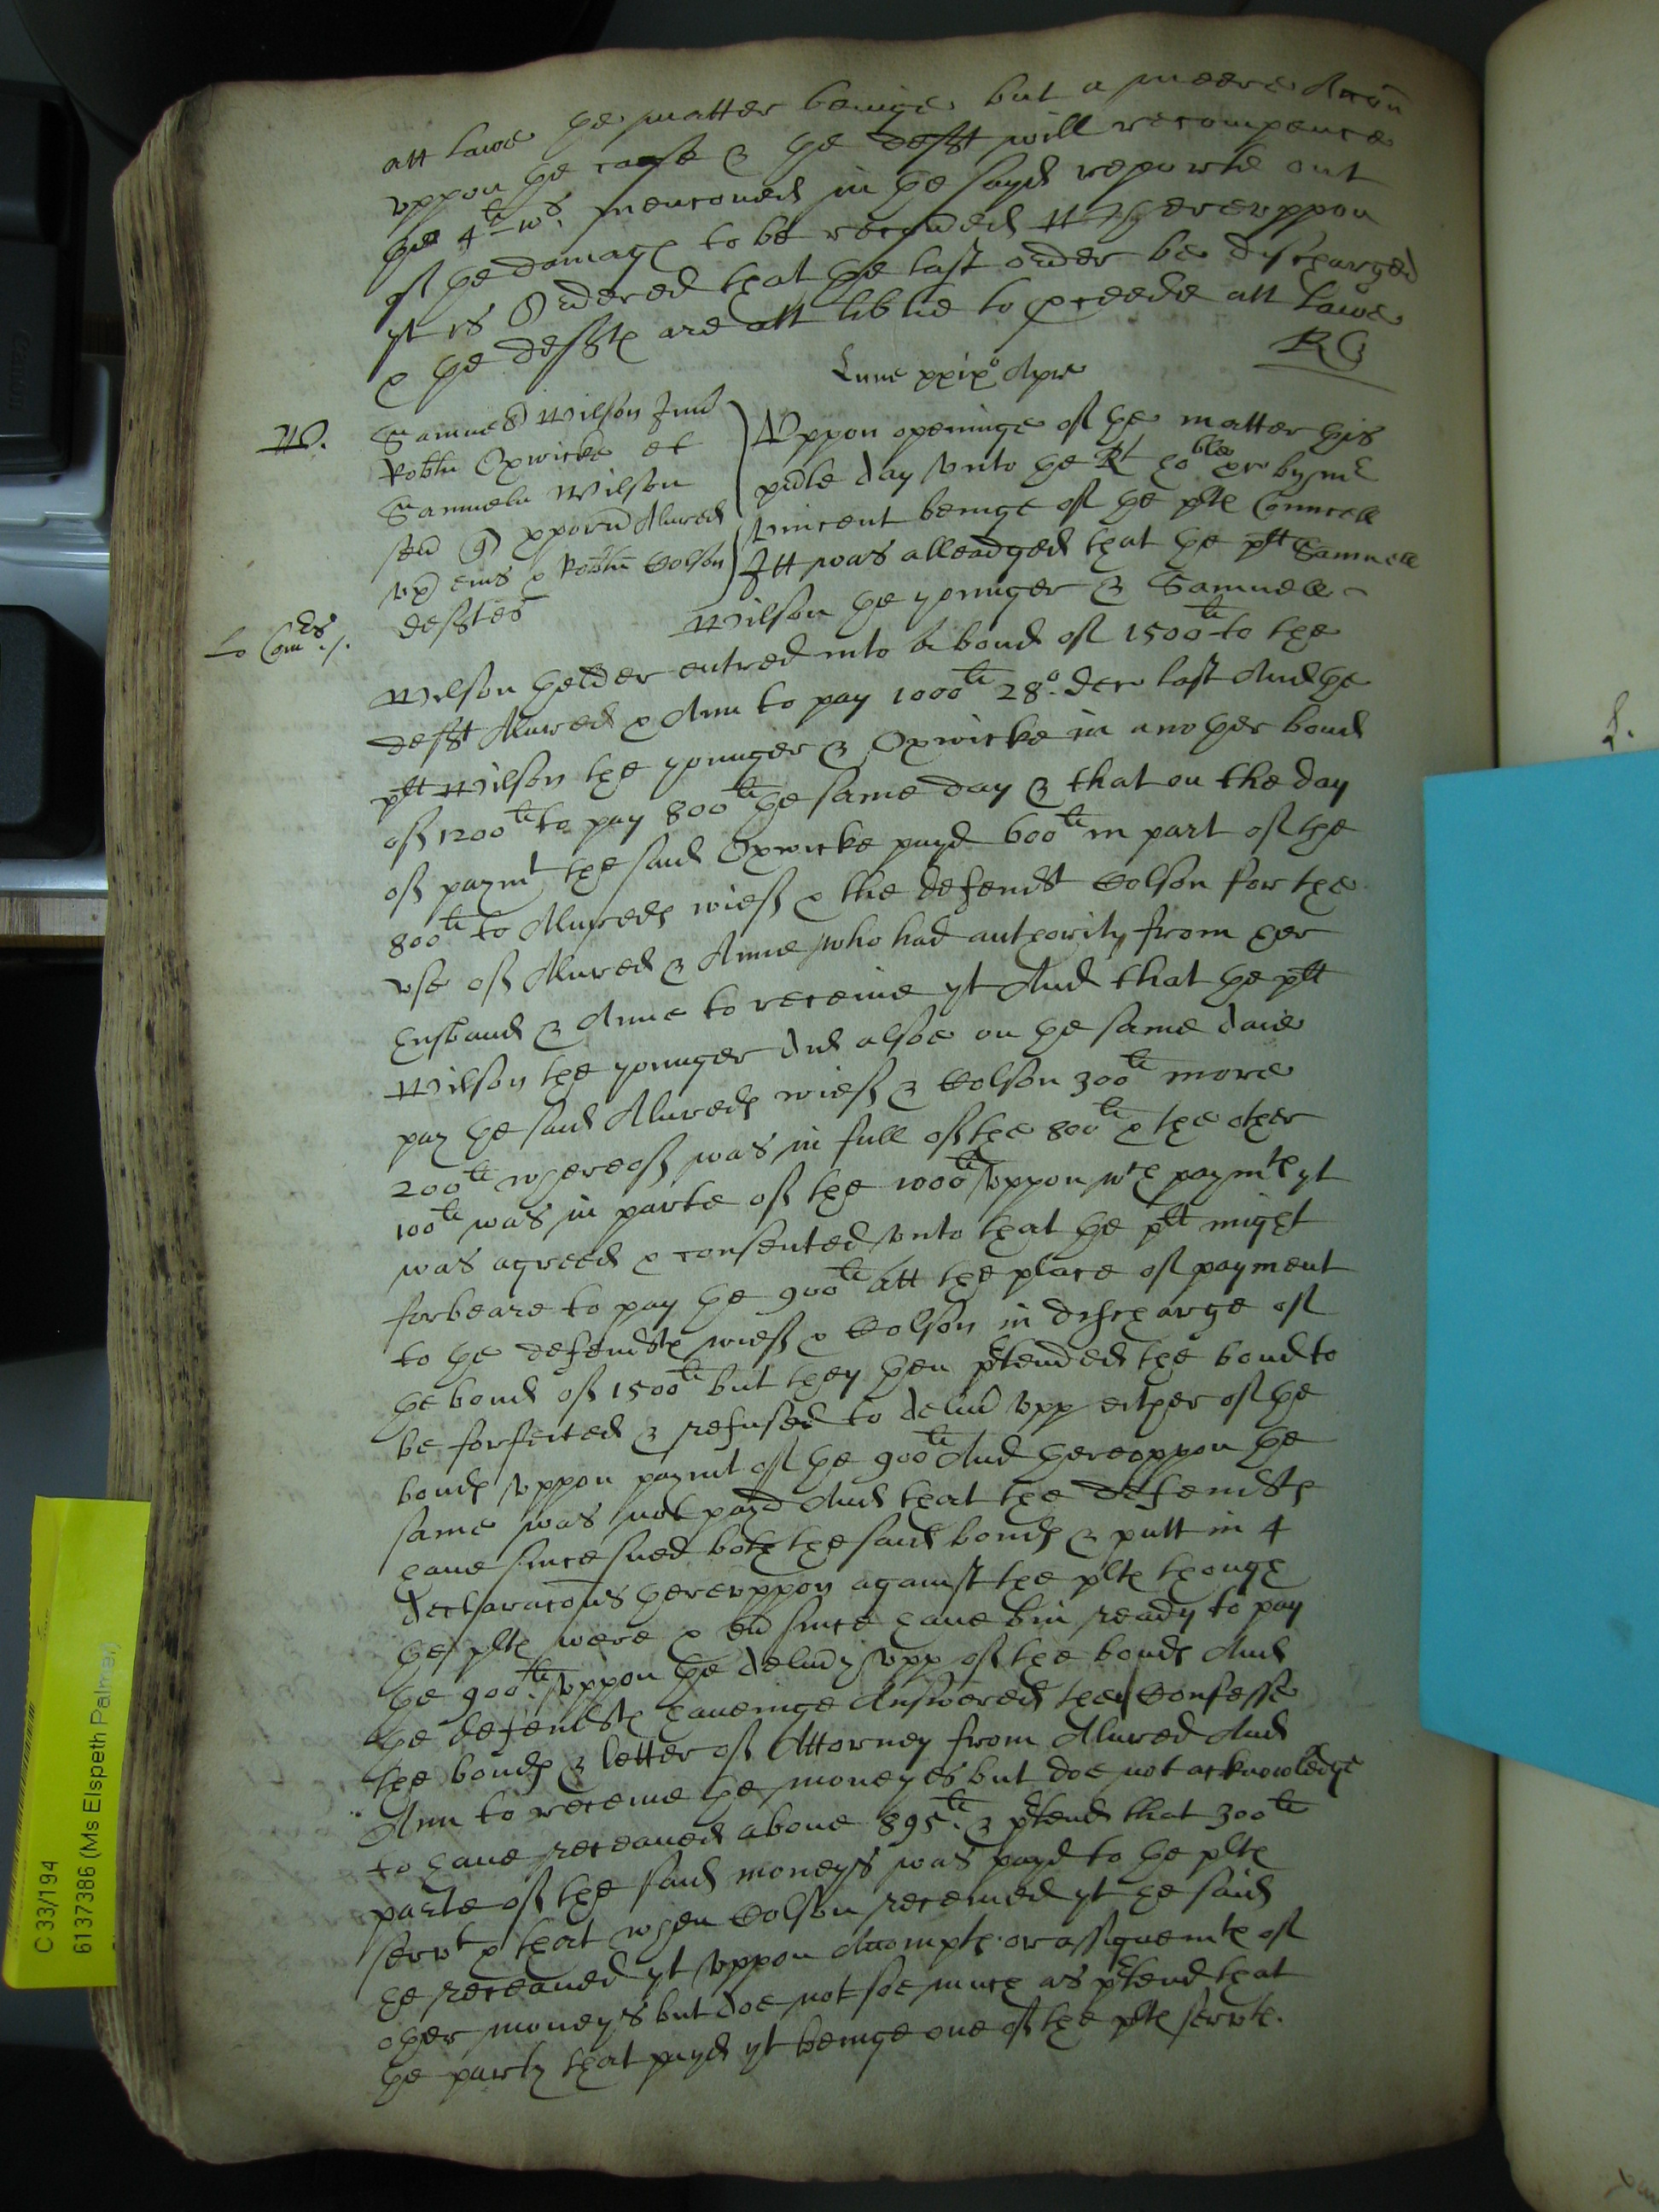 att lawe the matter beinge but a meere Accon
vppon the case & the defft will recompence
the 4li 10s menconed in the sayd reporte out
of the damages to be recovred Wherevppon
yt is Ordered that the last order be discharged
& the deffts are att libtie to pceede att Lawe
RC
Lune xxixo Apr
W.
Samuel Wilson Jun
Robtu Oxwicke et
Samuelu Wilson
sen Alured
vx eius & Robtu Colson
defftes
Vppon openinge of the matter this
pnte day vnto the Rt hoble by Mr
Vincent beinge of the plts Councell
Itt was alleadged that the plt Samuell
Wilson the younger & Samuell
Wilson thelder entred into a bond of 1500li to the
defft Alured & Ann to pay 1000li 28o Dec last And the
plt Wilson the younger & Oxwicke in another bond
of 1200li to pay 800li the same day & that on the day
of paymt the said Oxwicke payd 600li in part of the
800li to Alureds wief & the defendt Colson for the
vse of Alured & Anne who had authority from her
husband & Anne to receive yt And that the plt
Wilson the younger did alsoe on the same daie
pay the said Alureds wief & Colson 300li more
200li whereof was in full of the 800li & the other
100li was in parte of the 1000li vppon wch paymts yt
was agreed & consented vnto that the plt might
forbeare to pay the 900li att the place of payment
to the defendts wief & Colson in discharge of
the bond of 1500li but they then ptended the bond to
be forfeited & refused to deliv vpp either of the
bonds vppon paymt of the 900li And therevppon the
same was not payd And that the defendts
have since sued both the said bonds & putt in 4
declaracons therevppon against the plts though
the plts were & ev since have bin ready to pay
the 900li vppon the delivy vpp of the bonds And
the defendts haveinge Answered they Confesse
the bonds & letter of Attorney from Alured And
Ann to receive the moneyes but doe not acknowledge
to have receaved above 895li & ptend that 300li
parte of the said moneys was payd to the plts
servt & that when Colson received yt he said
he receaved yt vppon Accompte or assignemte of
other moneys but doe not soe much as ptend that
the party that payd yt beinge one of the plts servts.
to Comrs
Canon
C 33/194
6137386 (Ms Elspeth Palmer)